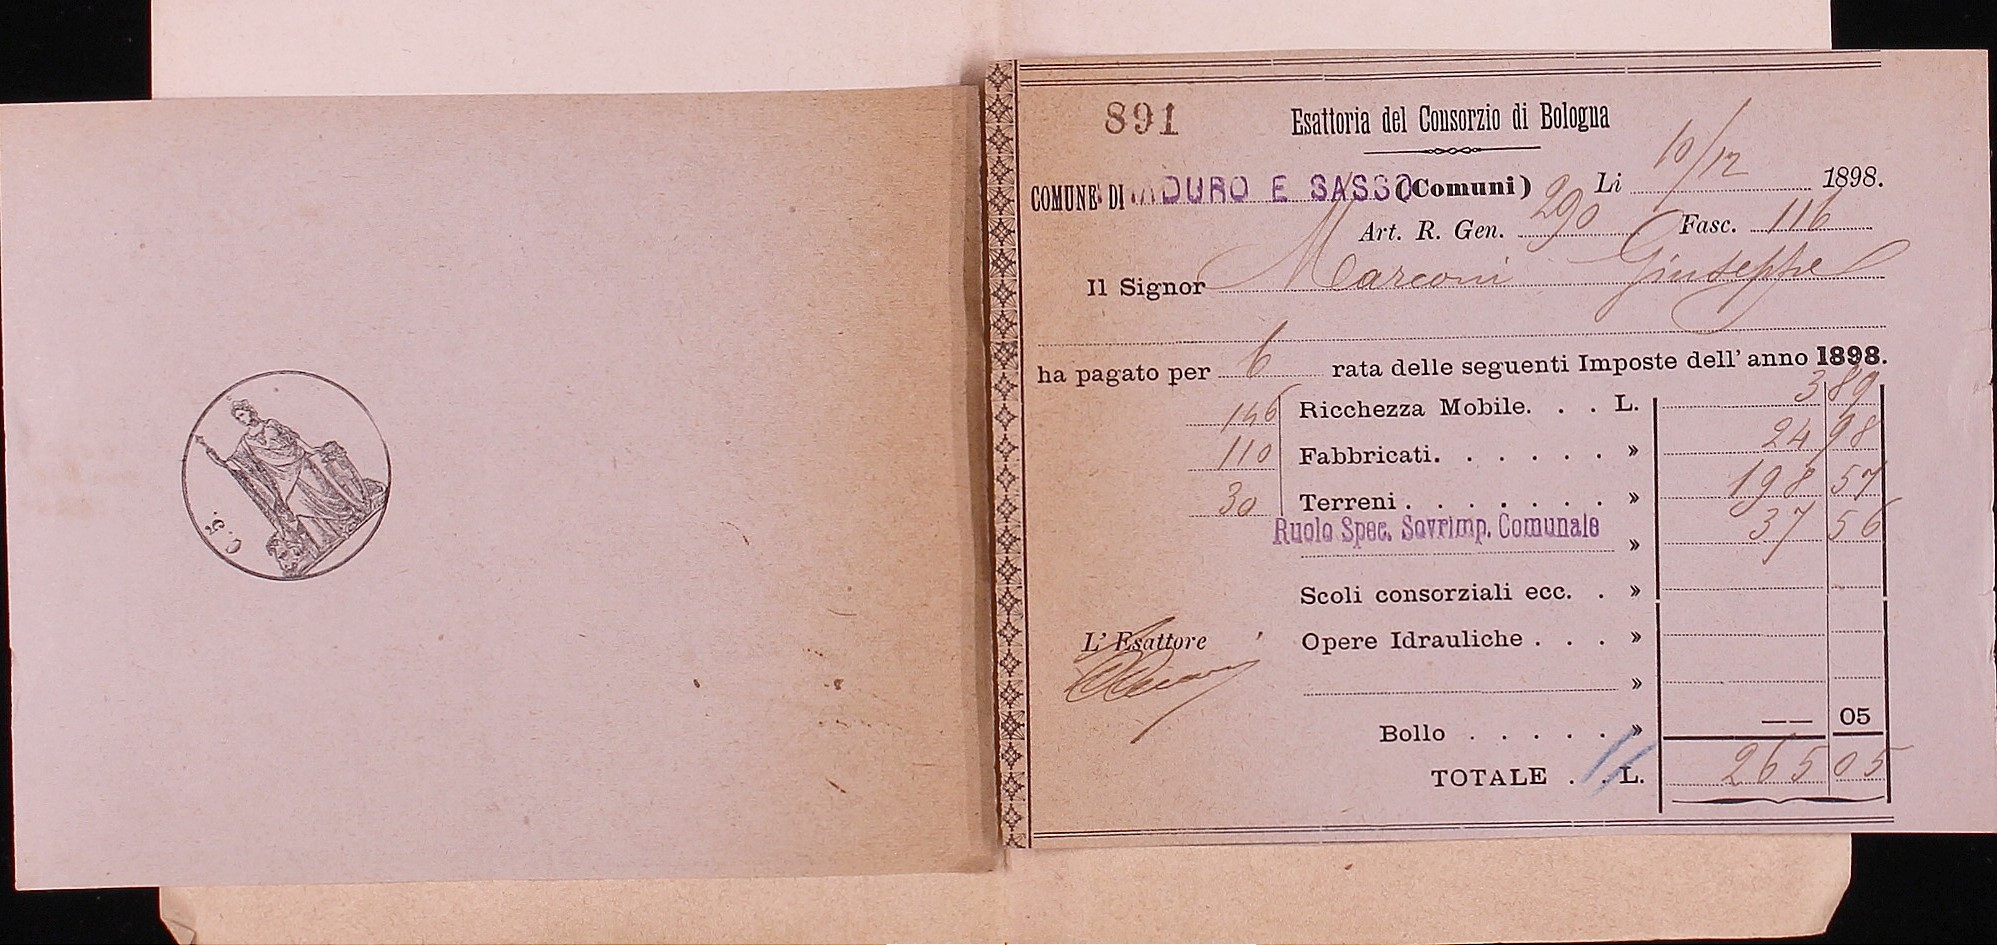 891
Esattoria del Consorzio di Bologna
COMUNE DI ADURO E SASSO (Comuni) Li 10/12 1898.
Art. R. Gen. 290 Fasc. 116
Il Signor Marconi Giuseppe
ha pagato per 6 rata delle seguenti Imposte dell' anno 1898.
146 Ricchezza Mobile. . . L. 3 89
110 Fabbricati. . . . . . » 24 98
30 Terreni . . . . . . . » 198 57
Ruolo Spec. Sovrimp. Comunale » 37 56
Scoli consorziali ecc. . »
L' Esattore Opere Idrauliche . . . »
»
Bollo . . . . . » —— 05
TOTALE . . L. 265 05
C. B.